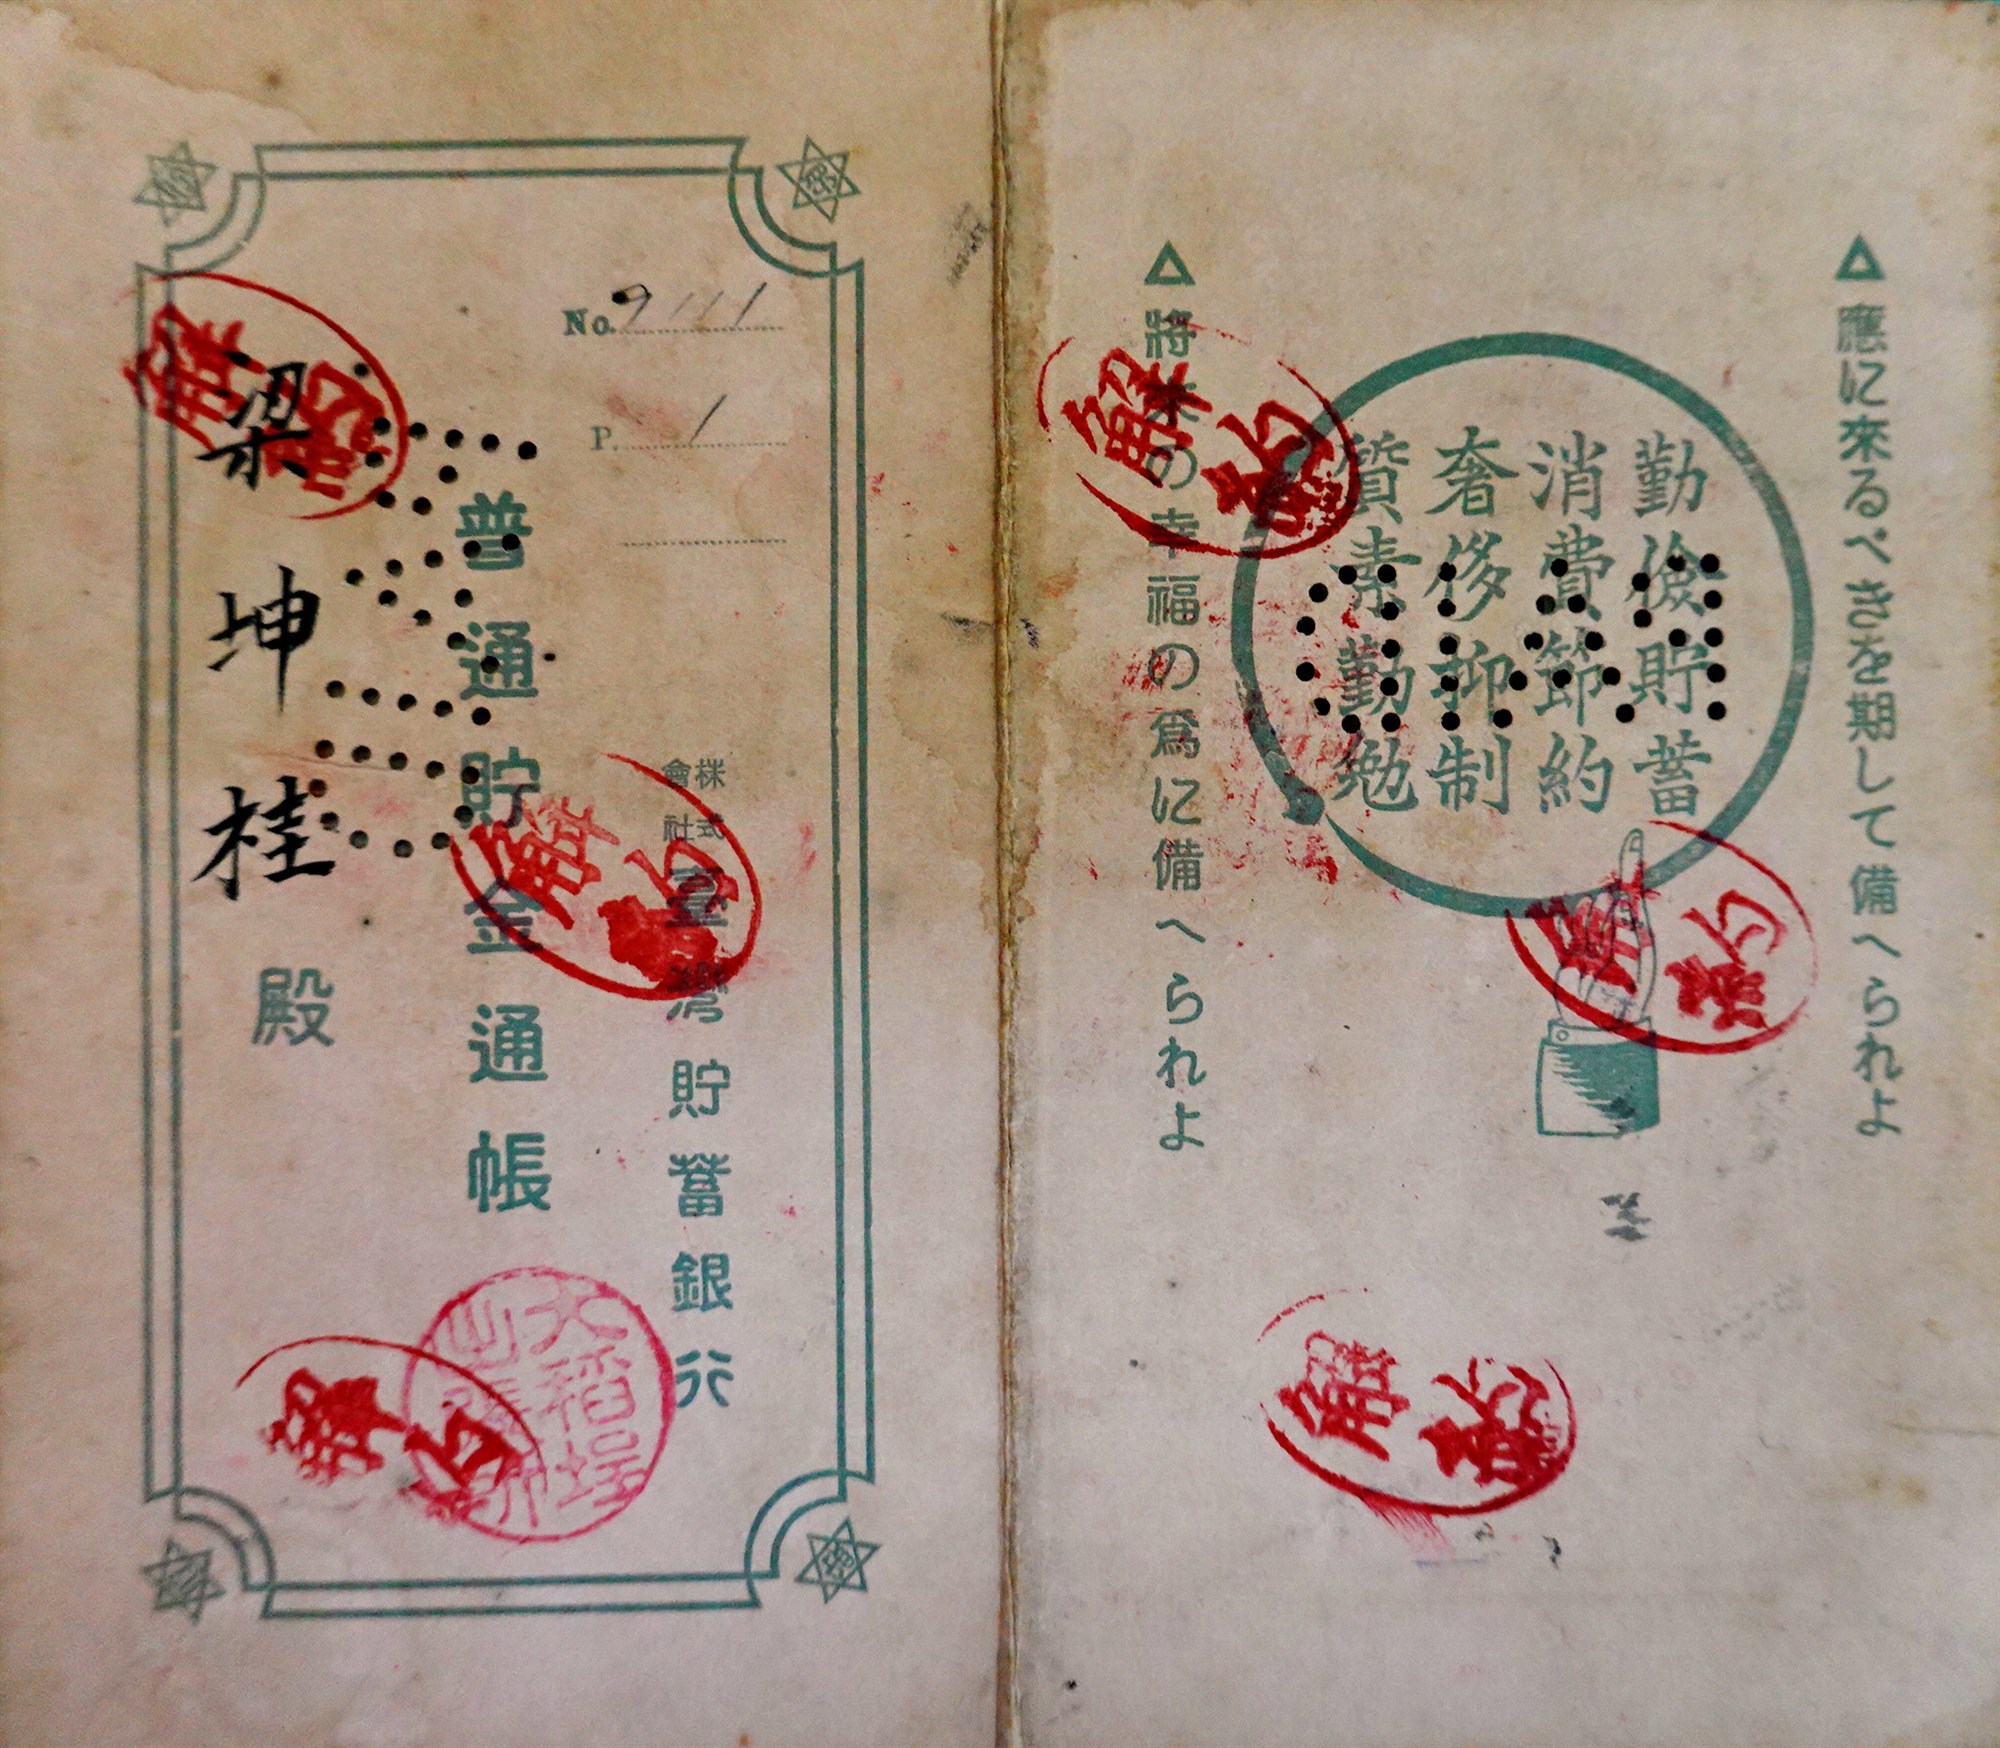 No. 9111
P. 1
株式
會社
臺灣貯蓄銀行
普通貯金通帳
梁坤桂殿
大稻埕
解約
解約
解約
▲應に來るべきを期して備へられよ
勤儉貯蓄
消費節約
奢侈抑制
質素勤勉
▲將來の幸福の爲に備へられよ
解約
解約
解約